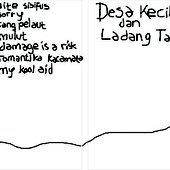 site sisifus
sorry
sang pelaut
mulut
damage is a risk
romantika kacamata
my kool aid
Desa Kecil
dan
Ladang Ta